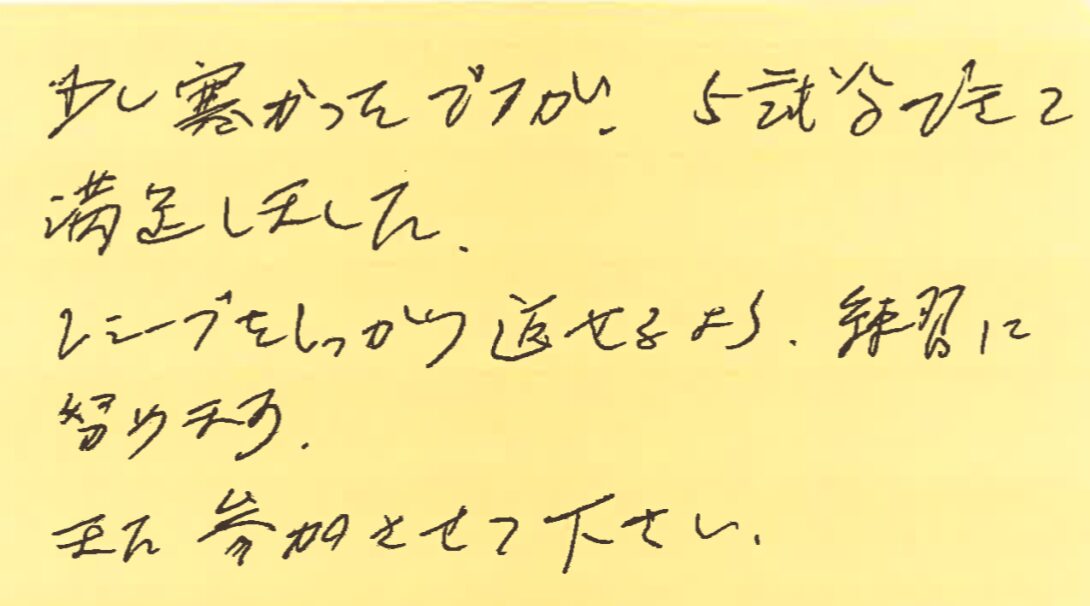 少し寒かったですが、5試合できて
満足しました.
レシーブをしっかり返せるよう、練習に
努めます.
また参加させて下さい.